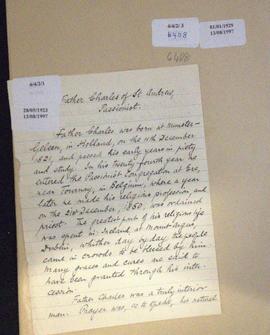 6/4/2/3
6408
01/01/1925
13/08/1997
6408
6/4/2/3
28/05/1923
13/08/1997
Father Charles of St Andrew,
Passionist.
Father Charles was born at Munster-
Geleen, in Holland, on the 11th December
1821, and passed his early years in piety
and study. In his twenty fourth year he
entered the Passionist Congregation at Ere,
near Tournay, in Belgium, where a year
later he made his religious profession, and
on the 21st December, 1850, was ordained
priest. The greatest part of his religious life
was spent in Ireland at Mount Argus,
Dublin, whither day by day the people
came in crowds to be blessed by him
Many graces and cures are said to
have been granted through his inter-
cession.
Father Charles was a truly interior
man. Prayer was, so to speak, his natural